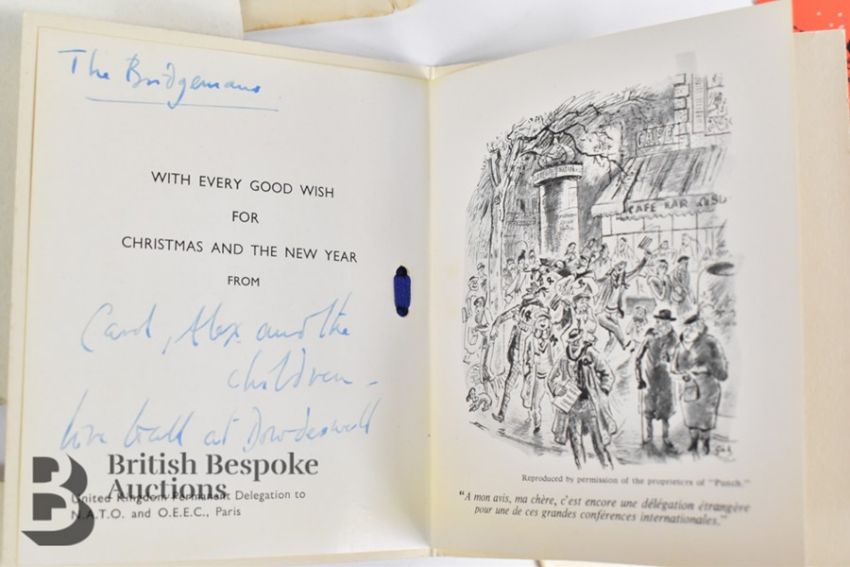 The Bridgemans
WITH EVERY GOOD WISH
FOR
CHRISTMAS AND THE NEW YEAR
FROM
Carol, Alex and the
children -
love to all at Dowdeswell
British Bespoke
Auctions
United Kingdom Permanent Delegation to
N.A.T.O. and O.E.E.C., Paris
CAFE BAR
Reproduced by permission of the proprietors of "Punch."
"A mon avis, ma chère, c'est encore une délégation étrangère
pour une de ces grandes conférences internationales."